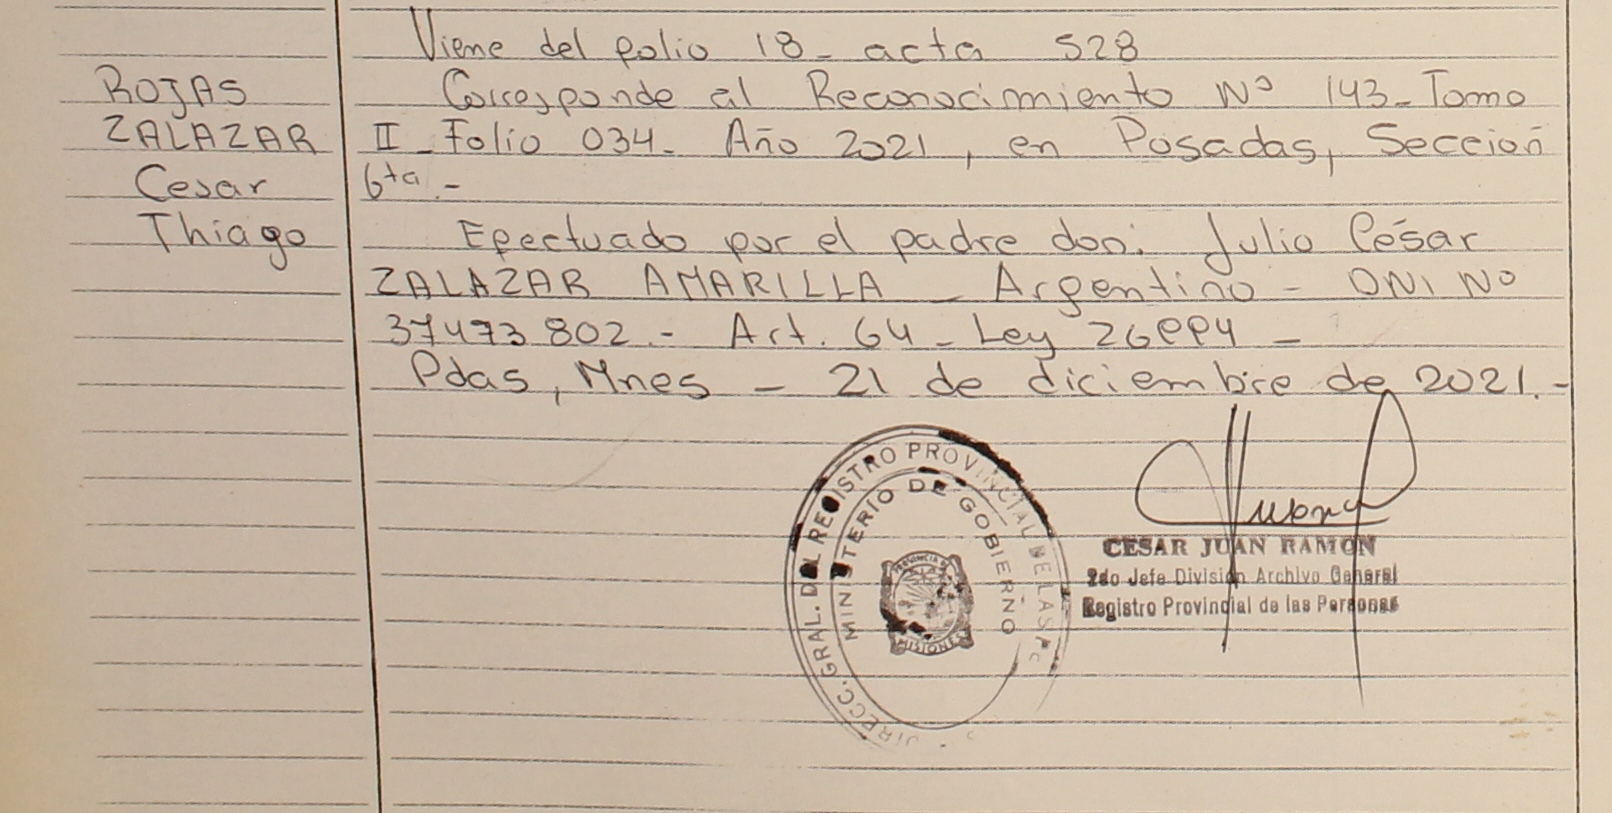 Viene del folio 18- acta 528
ROJAS
ZALAZAR
Cesar
Thiago
Corresponde al Reconocimiento Nº 143- Tomo
II- Folio 034- Año 2021, en Posadas, Sección
6ta.-
Efectuado por el padre don: Julio César
ZALAZAR AMARILLA - Argentino - DNI Nº
37473802.- Art. 64- Ley 26994 -
Pdas, Mnes - 21 de diciembre de 2021.-
DIRECC. GRAL. DEL REGISTRO PROVINCIAL DE LAS
MINISTERIO DE GOBIERNO
PROVINCIA DE
MISIONES
CESAR JUAN RAMON
2do Jefe División Archivo General
Registro Provincial de las Personas